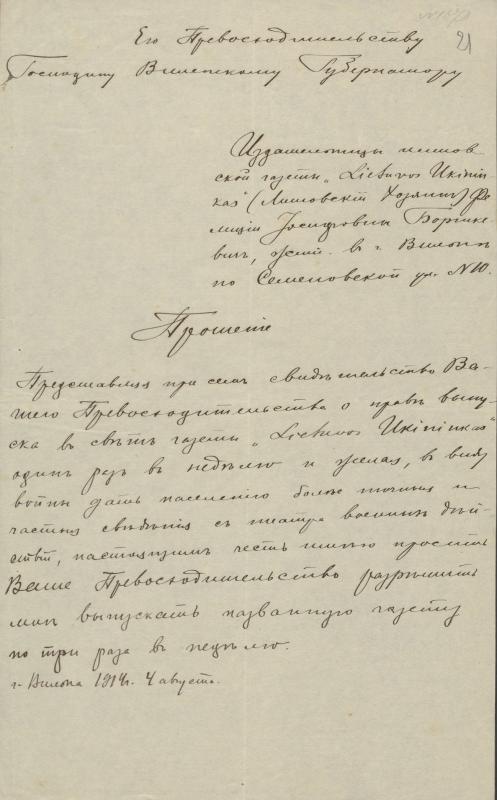 21
Его Превосходительству
Господину Виленскому Губернатору
Издательницы литов-
ской газеты „Lietuvos Ukinin-
kas" (Литовскій Хозяинъ) Фе-
лиціи Іосифовны Бортке-
вичъ, жит. въ г. Вильнѣ
по Семеновской ул. № 10.
Прошеніе
Представляя при семъ свидѣтельство Ва-
шего Превосходительства о правѣ выпу-
ска въ свѣтъ газеты „Lietuvos Ukininkas"
одинъ разъ въ недѣлю и желая, въ виду
войны дать населенію болѣе точныя и
частыя свѣдѣнія съ театра военныхъ дѣй-
ствій, настоящимъ честь имѣю просить
Ваше Превосходительство разрѣшить
мнѣ выпускать названную газету
по три раза въ недѣлю.
г. Вильна 1914 г. 4 августа.